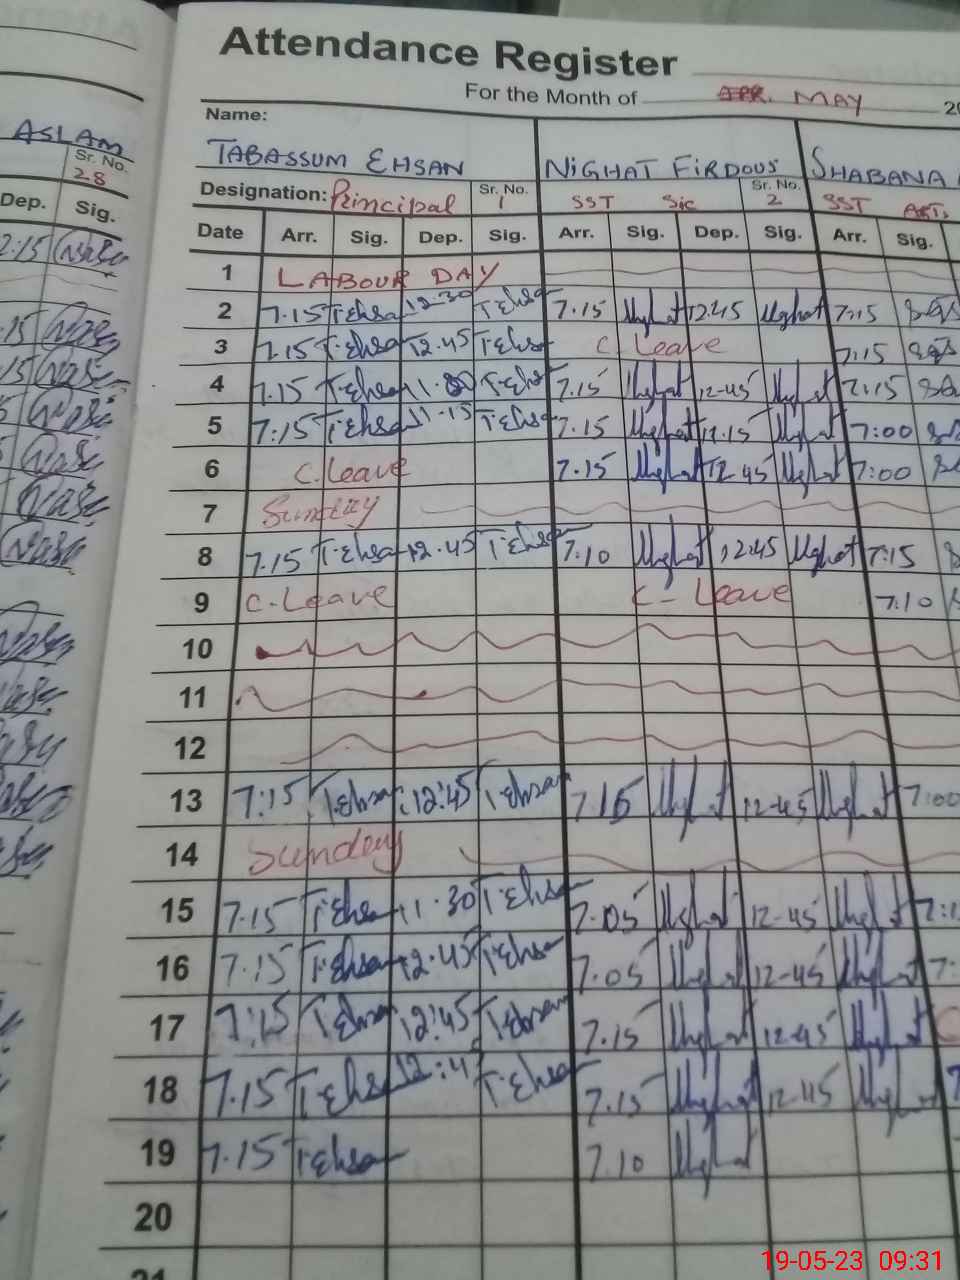 Attendance Register
For the Month of APR. MAY 20
ASLAM
Name:
TABASSUM EHSAN NIGHAT FIRDOUS SHABANA
Sr. No. 28
Designation: Principal Sr. No. 1 SST Sic Sr. No. 2 SST
Dep. Sig. Date Arr. Sig. Dep. Sig. Arr. Sig. Dep. Sig. Arr. Sig.
1 LABOUR DAY
2 7.15 T.Ehsan 12.30 T.Ehsan 7.15 Nighat 12.45 Nighat 7:15
3 7.15 T.Ehsan 12.45 T.Ehsan C. Leave 7:15
4 7.15 T.Ehsan T.Ehsan 7.15 Nighat 12-45 Nighat 7:15
5 7:15 T.Ehsan 11-15 T.Ehsan 7.15 Nighat 12.15 Nighat 7:00
6 C.Leave 7.15 Nighat 12-45 Nighat 7:00
7 Sunday
8 7.15 T.Ehsan 12.45 T.Ehsan 7.10 Nighat 12.45 Nighat 7:15
9 C.Leave C- Leave 7.10
10
11
12
13 7:15 T.Ehsan 12:45 T.Ehsan 7.15 Nighat 12-45 Nighat 7:00
14 Sunday
15 7.15 T.Ehsan 11.30 T.Ehsan 7.05 Nighat 12-45 Nighat
16 7.15 T.Ehsan 12.45 T.Ehsan 7.05 Nighat 12-45 Nighat
17 7:15 T.Ehsan 12:45 T.Ehsan 7.15 Nighat 12-45 Nighat
18 7.15 T.Ehsan 12:45 T.Ehsan 7.15 Nighat 12-45 Nighat
19 7.15 T.Ehsan 7.10 Nighat
20
21
19-05-23 09:31